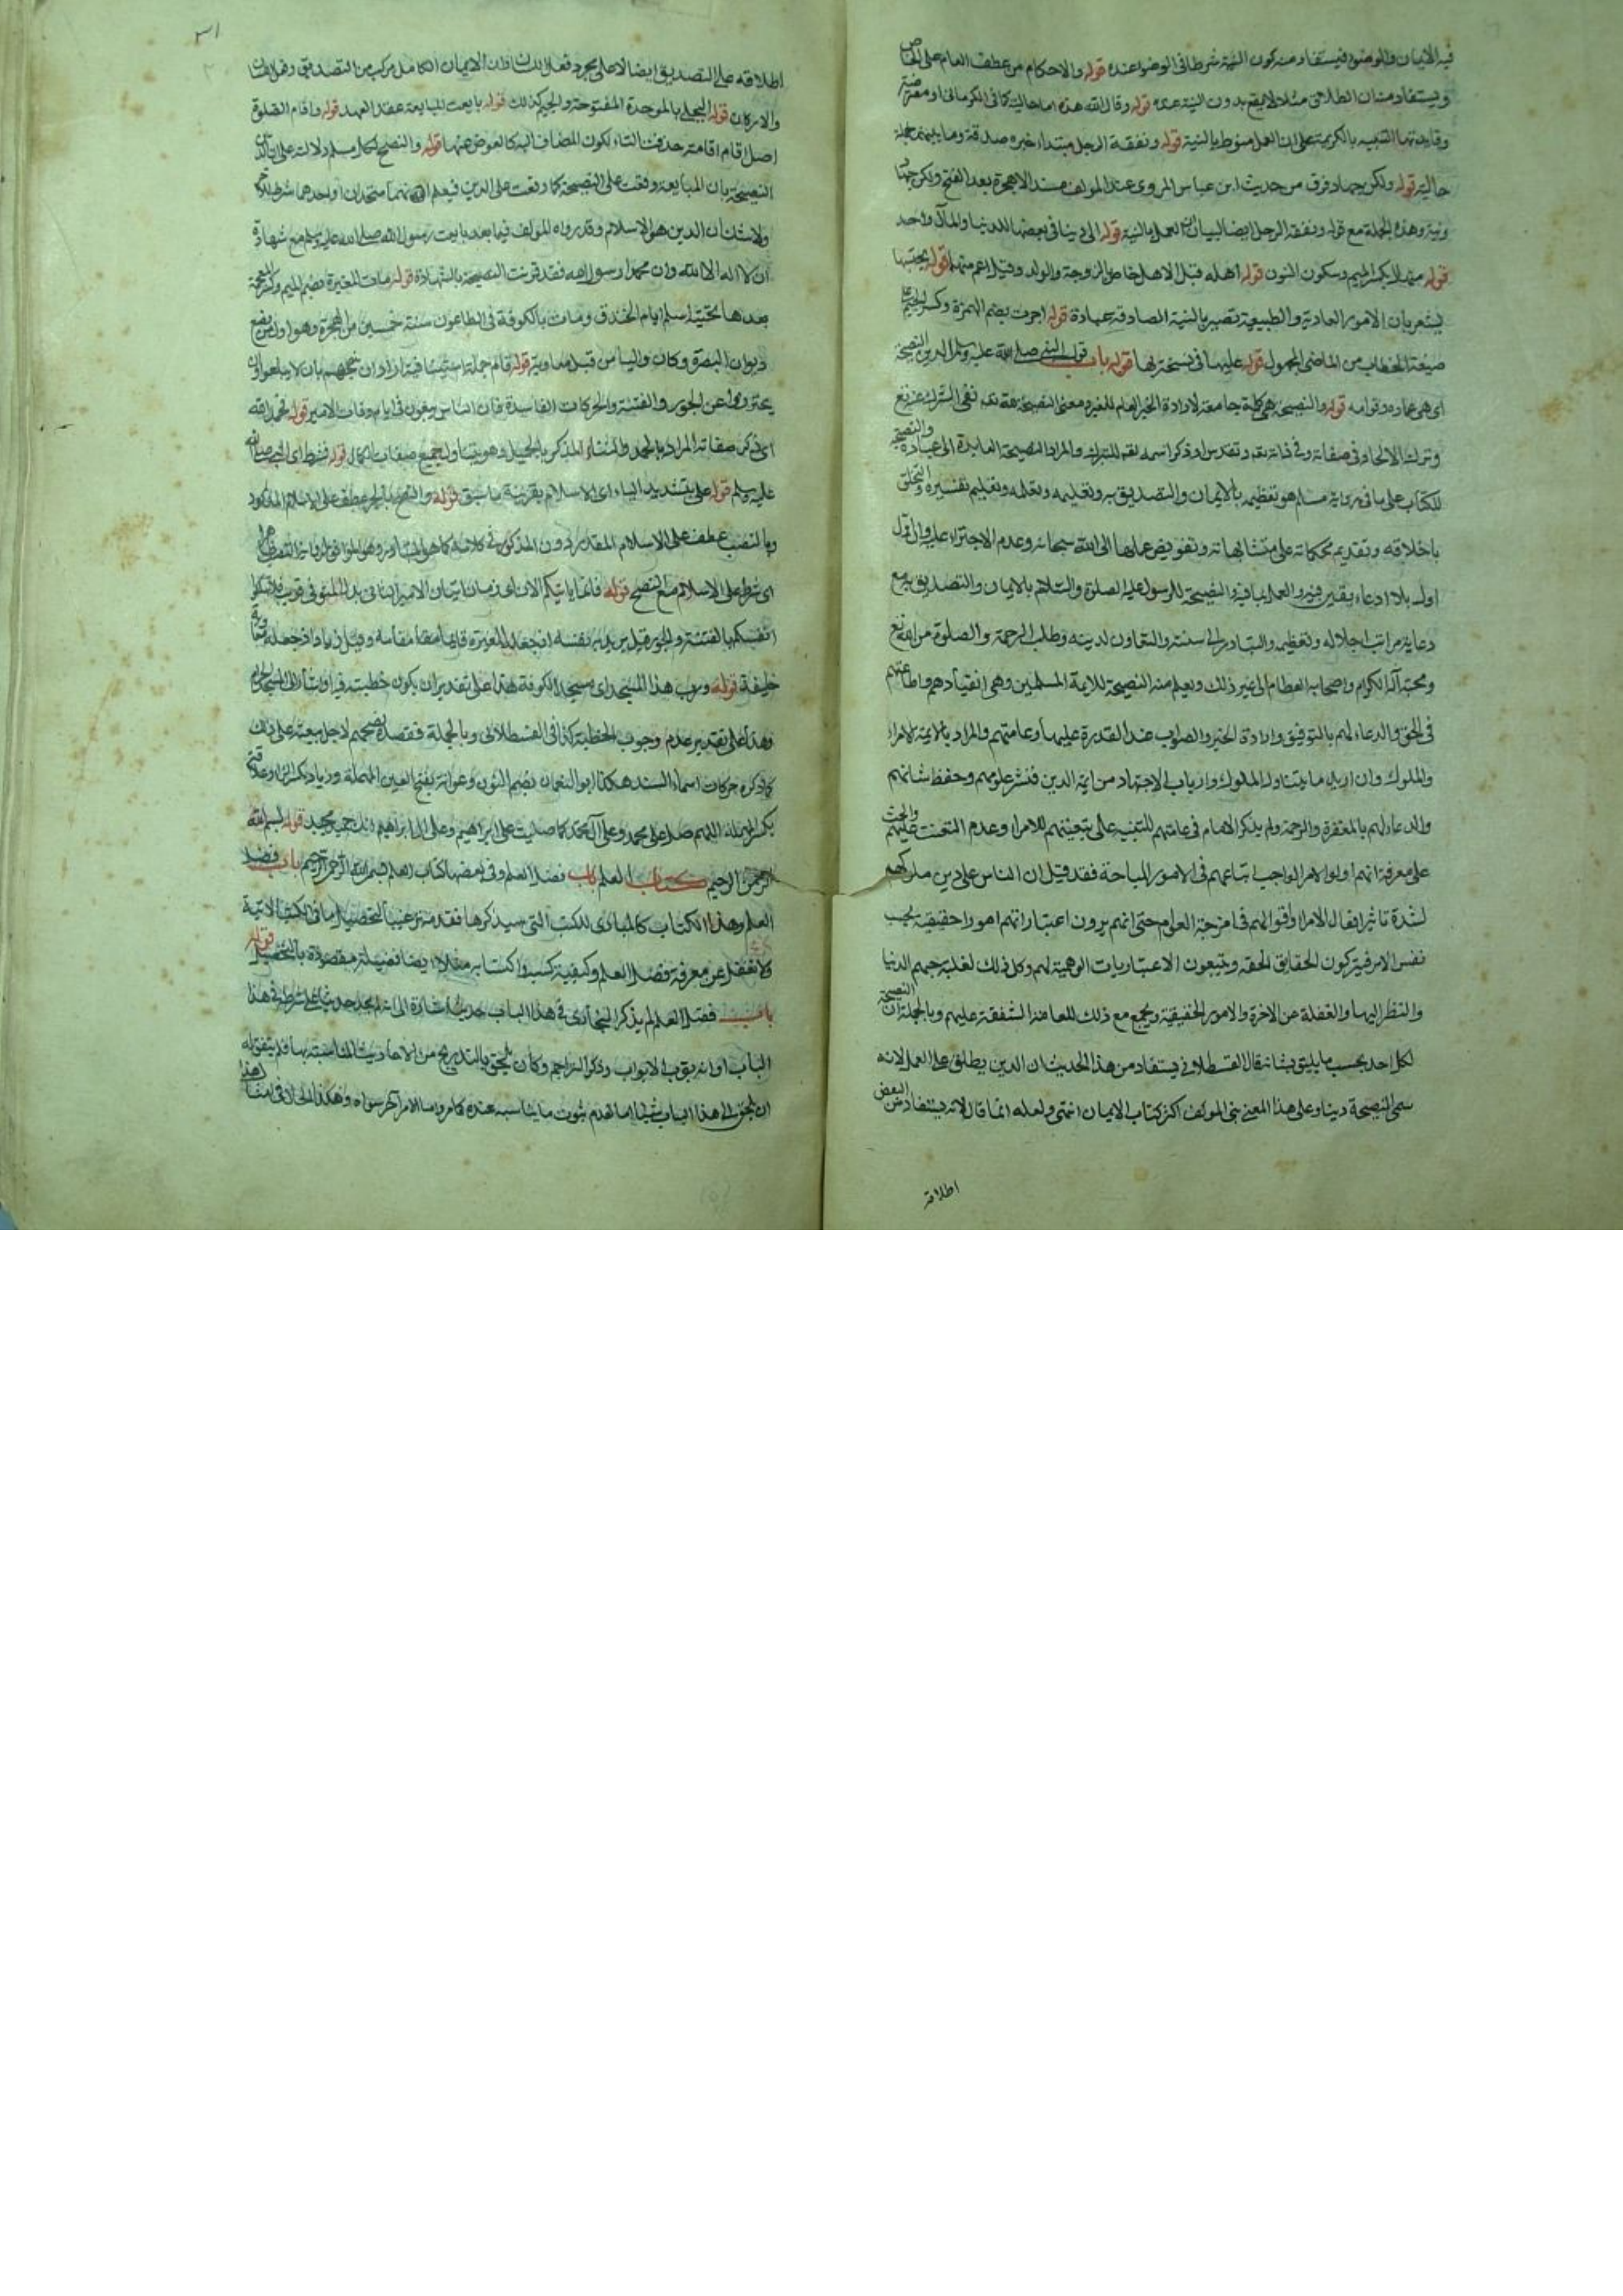 فيه الايمان والوضوء فيستفاد منه كون النية شرطا في الوضوء عنده قوله والاحكام من عطف العام على الخاص
ويستفاد منه ان الطلاق مثلا لا يقع بدون النية عنده قوله وقال الله هذه اما حالية كما في الكرماني او معترضة
التنبيه بالكريمة على ان العمل منوط بالنية قوله ونفقة الرجل مبتداء خبره صدقة وما بينهما جملة
حالية قوله ولكن جهاد فرق من حديث ابن عباس المروي عند المولف مسندا لا هجرة بعد الفتح ولكن جهاد
ونية وهذه الجملة مع قوله ونفقة الرجل ايضا لبيان العمل بالنية قوله الى دينا في بعضها للدنيا والمآل واحد
قوله منهال بكسر الميم وسكون النون قوله اهله قيل الاهل خاص بالزوجة والولد وقيل اعم منهما قوله يحتسبها
يشعر بان الامور العادية والطبيعية تصير بالنية الصادقة عبادة قوله اجرت بضم الهمزة وكسر الجيم على
صيغة الخطاب من الماضي المجهول قوله عليها في نسخة بها قوله باب قول النبي صلى الله عليه وسلم الدين النصيحة
اي هي عماده وقوامه قوله والنصيحة هي كلمة جامعة لارادة الخير العام للغير ومعنى النصيحة لله نفي الشرك عنه
وترك الالحاد في صفاته وفي ذاته وتقدس او ذكر اسمه للتبرك والمراد النصيحة العايدة الى عباده والنصيحة
للكتاب على ما في رواية مسلم هو تعظيمه بالايمان والتصديق به وتعليمه وتعلمه وتعليم تفسيره والتخلق
باخلاقه وتقديم محكماته على متشابهاته وتفويض علمها الى الله سبحانه وعدم الاجتراء عليه وان اول
اول بلا ادعاء يقين فيه والعمل بما فيه والنصيحة للرسول عليه الصلوة والسلام بالايمان والتصديق به مع
رعاية مراتب اجلاله وتعظيمه والتبادر الى سنته والتعاون لدينه وطلب الرحمة والصلوة من الله تع
ومحبة آله الكرام واصحابه العظام الى غير ذلك ويعلم منه النصيحة للايمة المسلمين وهي انقيادهم واطاعتهم
في الحق والدعاء لهم بالتوفيق وارادة الخير والصواب عند القدرة عليها وعامتهم والمراد بالايمة الامراء
والملوك وان اريد ما يتناول الملوك وارباب الاجتهاد من ايمة الدين فنشر علومهم وحفظ شانهم
والدعاء لهم بالمغفرة والرحمة ولم يذكر الامام في عامتهم للتنبيه على تبعيتهم للامراء وعدم التعنت عليهم والحث
على معرفة انهم اولوا الامر الواجب اتباعهم في الامور المباحة فقد قيل ان الناس على دين ملوكهم
لشدة تاثير افعال الامراء واقوالهم في امزجة العوام حتى انهم يرون اعتباراتهم امورا حقيقية بحسب
نفس الامر فيتركون الحقايق الحقة ويتبعون الاعتباريات الوهمية لهم وكل ذلك لغلبة حبهم الدنيا
والنظر اليها والغفلة عن الاخرة والامور الحقيقية ويجمع مع ذلك للعامة الشفقة عليهم وبالجملة ان النصيحة
لكل احد بحسب ما يليق بشانه قال القسطلاني يستفاد من هذا الحديث ان الدين يطلق على العمل لانه
سمى النصيحة دينا وعلى هذا المعنى بنى المولف اكثر كتاب الايمان انتهى ولعله انما قال لانه يستفاد من البعض
اطلاقه
٣١
اطلاقه على التصديق ايضا لا على مجرد فعل اللسان فان الايمان الكامل مركب من التصديق وفعل اللسان
والاركان قوله البجلي بالموحدة المفتوحة والجيم كذلك قوله بايعت المبايعة عقد العهد قوله واقام الصلوة
اصل اقام اقامة حذفت التاء لكون المضاف اليه كالعوض عنها قوله والنصح لكل مسلم دلالته على ان الدين
النصيحة بان المبايعة وقعت على النصيحة كما وقعت على الدين فيعلم انهما متحدان او احدهما شرط للاخر
ولا شك ان الدين هو الاسلام وقد رواه المولف فيما بعد بايعت رسول الله صلى الله عليه وسلم مع شهادة
ان لا اله الا الله وان محمدا رسول الله فقد قرنت النصيحة بالشهادة قوله مات المغيرة بضم الميم وكسر المعجمة
بعدها تحتية اسلم ايام الخندق ومات بالكوفة في الطاعون سنة خمسين من الهجرة وهو اول من وضع
ديوان البصرة وكان واليا من قبل معاوية قوله قام جملة استينافية اراد ان ينبههم بان لا يبلغوا وان
يحترزوا عن الجور والفتنة والحركات الفاسدة فان الناس يبغون في ايام وفات الامير قوله فحمد الله
اي ذكر صفاته المراد بالحمد والثناء الذكر بالجميل وهو يتناول جميع صفات الكمال قوله فشرط اي النبي صلى الله
عليه وسلم قوله علي بتشديد الياء اي الاسلام بقرينة ما سبق قوله والنصح بالجر عطف على الاسلام المذكور
وبالنصب عطف على الاسلام المقدر دون المذكور في كلامه كما هو المتبادر
اي شرط علي الاسلام مع النصح قوله فانما ياتيكم الآن
انفسكم بالفتنة والجور قيل
خليفة قوله ورب هذا المسجد اي مسجد الكوفة هذا على تقدير ان يكون خطبته فيه او اشار الى المسجد الحرام
وهذا على تقدير عدم وجوب الخطبة كذا في القسطلاني وبالجملة فقصده نصحهم لاجل بيعته على ذلك
كما ذكره حركات اسماء السند هكذا ابو النعمان بضم النون وعوانة بفتح العين المهملة وزياد بكسر الزاء وعلاقة
بكسر المهملة اللهم صل على محمد وعلى آل محمد كما صليت على ابراهيم وعلى آل ابراهيم انك حميد مجيد قوله بسم الله
الرحمن الرحيم كتاب العلم باب فضل العلم وفي بعضها كتاب العلم بسم الله الرحمن الرحيم باب فضل
العلم وهذا الكتاب كالمبادي للكتب التي سيذكرها فقدمه ترغيبا لتحصيل ما في الكتب الآتية
ولا تغفل عن معرفة فضل العلم وكيفية كسبه واكتسابه مثلا ايضا فضيلة مقصودة بالتحصيل قوله
باب فضل العلم لم يذكر البخاري في هذا الباب حديثا اشارة الى انه لم يجد حديثا على شرطه في هذا
الباب او انه بوب الابواب وذكر التراجم وكان يلحق بالتدريج من الاحاديث المناسبة بها فلم يتفق له
ان يلحق الى هذا الباب شيئا اما لعدم ثبوت ما يناسبه عنده كما مر واما لامر آخر سواه وهكذا الحال في امثال هذا